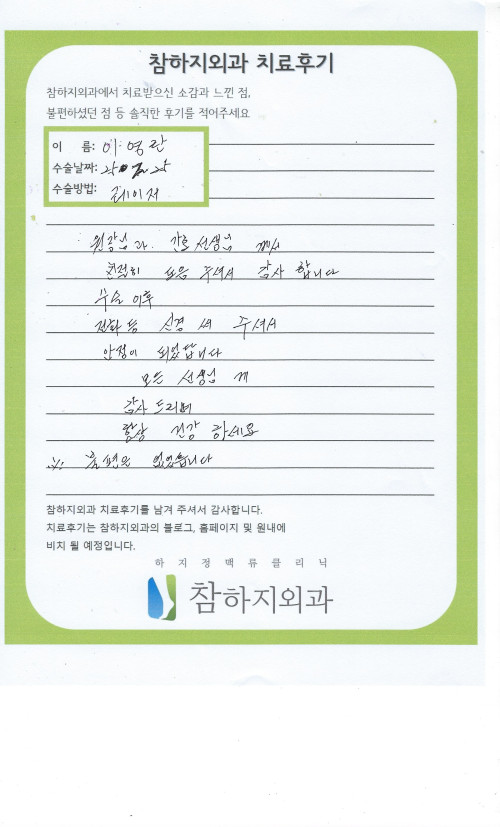 참하지외과 치료후기
참하지외과에서 치료받으신 소감과 느낀 점,
불편하셨던 점 등 솔직한 후기를 적어주세요
이 름: 이영란
수술날짜: 25
수술방법: 레이저
원장님과 간호 선생님 께서
친절히 도움 주셔서 감사 합니다
수술 이후
전화등 신경 써 주셔서
안정이 되었답니다
모든 선생님 께
감사 드리며
항상 건강 하세요
불편은 없었읍니다
참하지외과 치료후기를 남겨 주셔서 감사합니다.
치료후기는 참하지외과의 블로그, 홈페이지 및 원내에
비치 될 예정입니다.
하지정맥류클리닉
참하지외과